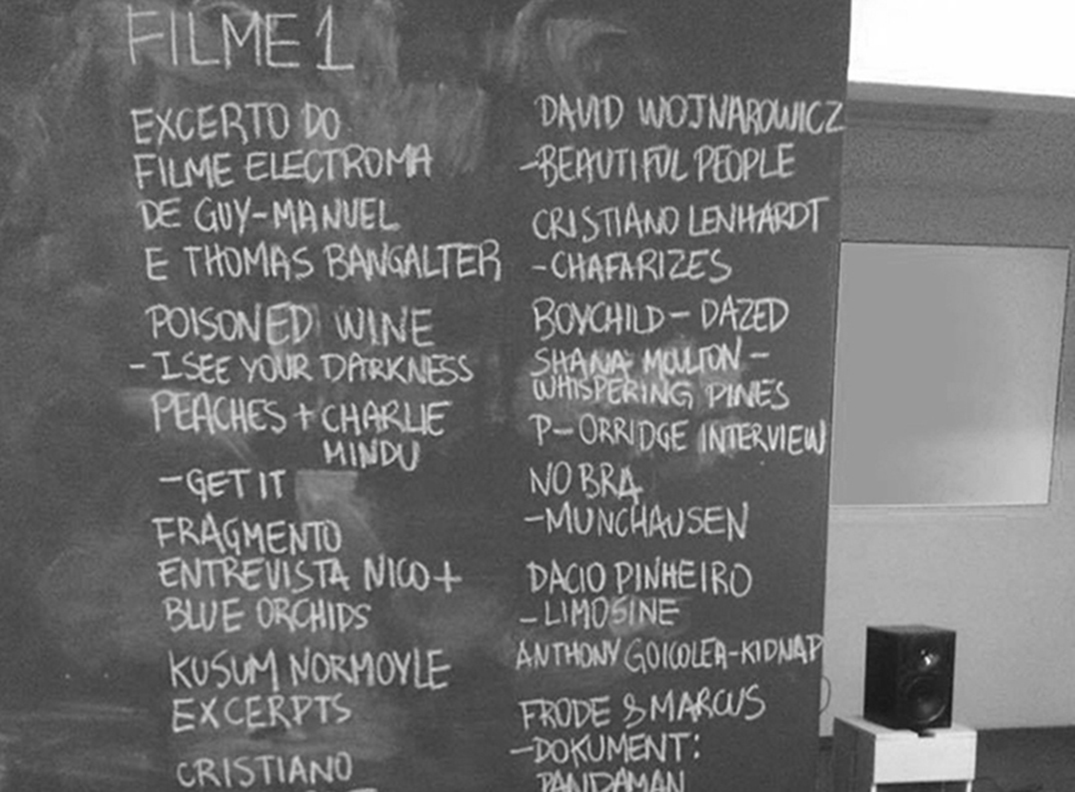 FILME 1
EXCERTO DO
FILME ELECTROMA
DE GUY-MANUEL
E THOMAS BANGALTER
POISONED WINE
- I SEE YOUR DARKNESS
PEACHES + CHARLIE
MINDU
- GET IT
FRAGMENTO
ENTREVISTA NICO +
BLUE ORCHIDS
KUSUM NORMOYLE
EXCERPTS
CRISTIANO
DAVID WOJNAROWICZ
- BEAUTIFUL PEOPLE
CRISTIANO LENHARDT
- CHAFARIZES
BOYCHILD - DAZED
SHANA MOULTON -
WHISPERING PINES
P-ORRIDGE INTERVIEW
NO BRA
- MUNCHAUSEN
DACIO PINHEIRO
- LIMOSINE
ANTHONY GOICOLEA-KIDNAP
FRODE & MARCUS
- DOKUMENT:
PANDAMAN